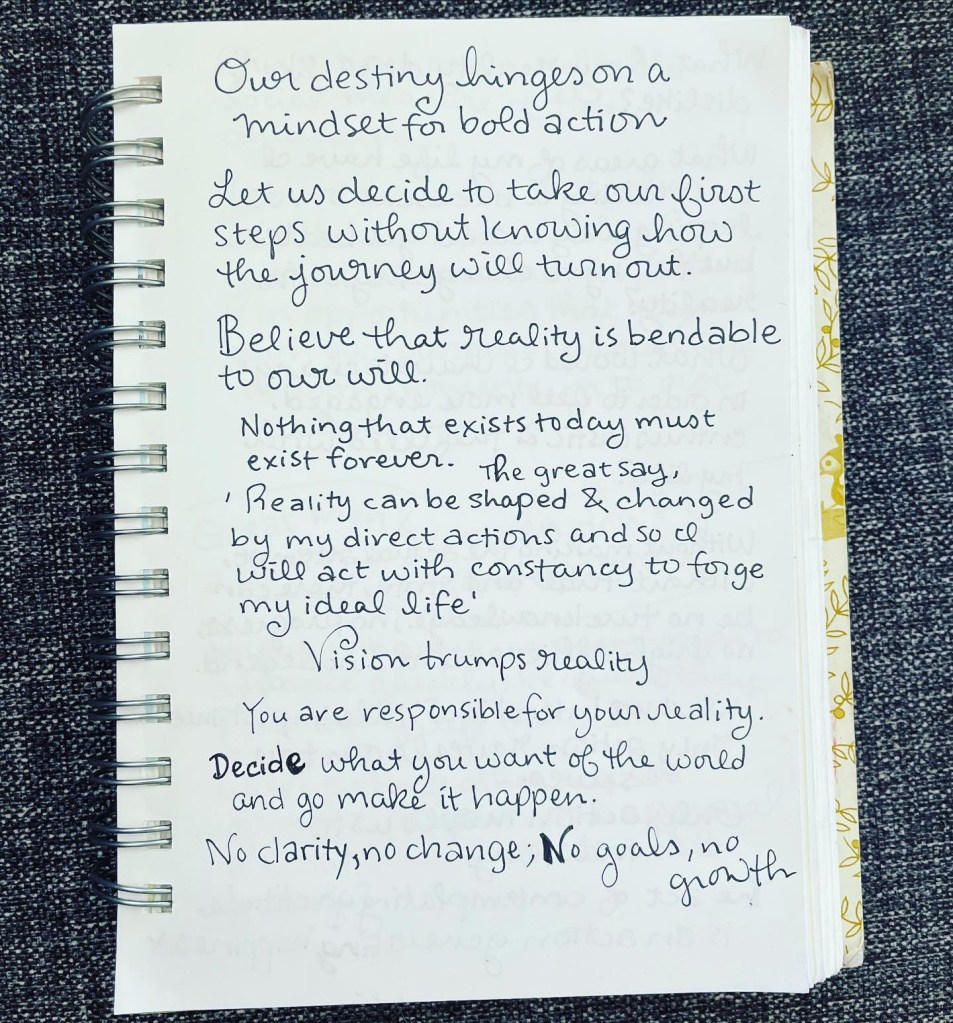 Our destiny hinges on a
mindset for bold action
Let us decide to take our first
steps without knowing how
the journey will turn out.
Believe that reality is bendable
to our will.
Nothing that exists today must
exist forever. The great say,
'Reality can be shaped & changed
by my direct actions and so I
will act with constancy to forge
my ideal life'
Vision trumps reality
You are responsible for your reality.
Decide what you want of the world
and go make it happen.
No clarity, no change; No goals, no
growth